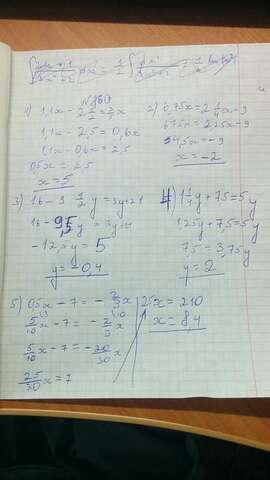 №860
1) 1,1x - 2 1/2 = 3/5 x
1,1x - 2,5 = 0,6x
1,1x - 0,6x = 2,5
0,5x = 2,5
x = 5
2) 6,75x = 2 1/4 x - 9
6,75x = 2,25x - 9
4,5x = -9
x = -2
3) 16 - 9 1/2 y = 3y + 21
16 - 9,5y = 3y + 21
-12,5y = 5
y = -0,4
4) 1 1/4 y + 7,5 = 5y
1,25y + 7,5 = 5y
7,5 = 3,75y
y = 2
5) 0,5x - 7 = - 2/3 x
5/10 x - 7 = - 2/3 x
5/10 x - 7 = - 20/30 x
25/30 x = 7
25x = 210
x = 8,4